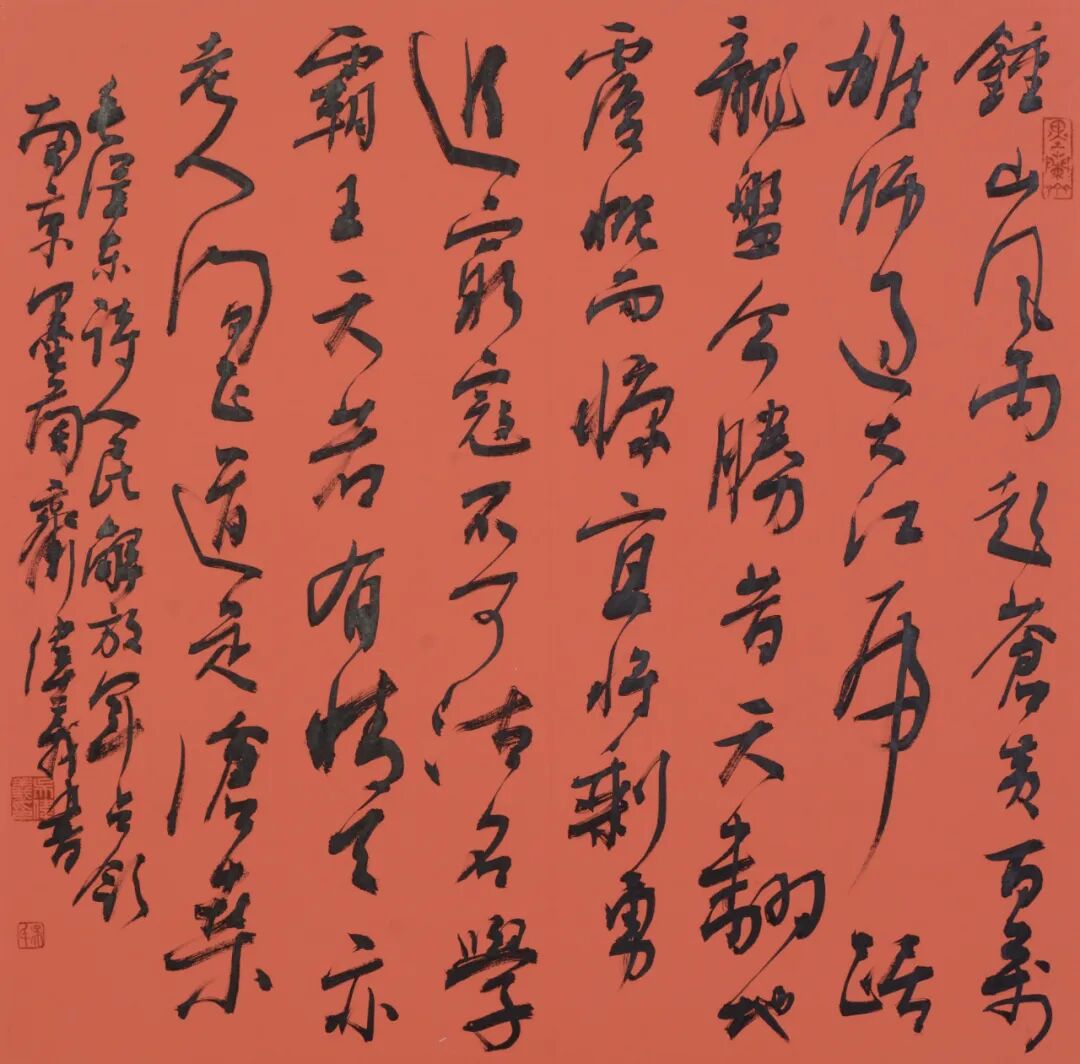 鍾山風雨起蒼黃百萬
雄師過大江虎踞
龍盤今勝昔天翻地
覆慨而慷宜將剩勇
追窮寇不可沽名學
霸王天若有情天亦
老人間正道是滄桑
毛澤東詩人民解放軍占領
南京墨蘭齋偉義書